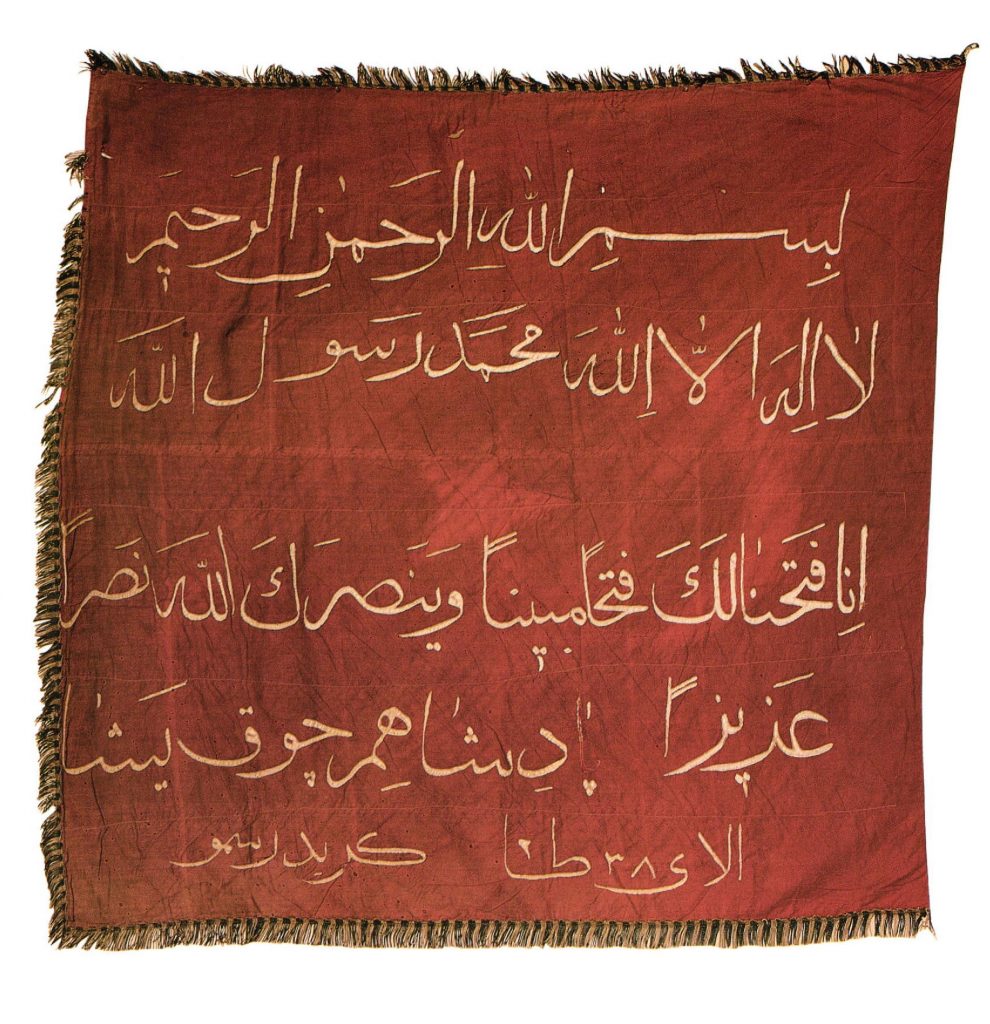 بِسمِ اللهِ الرحمنِ الرحيمِ
لا اله الا الله محمد رسول الله
انا فتحنا لك فتحا مبينا وينصرك الله نصراً
عزيزاً پادشاهم چوق يشا
الای ٣٨ طا ٢ كريد رسمو